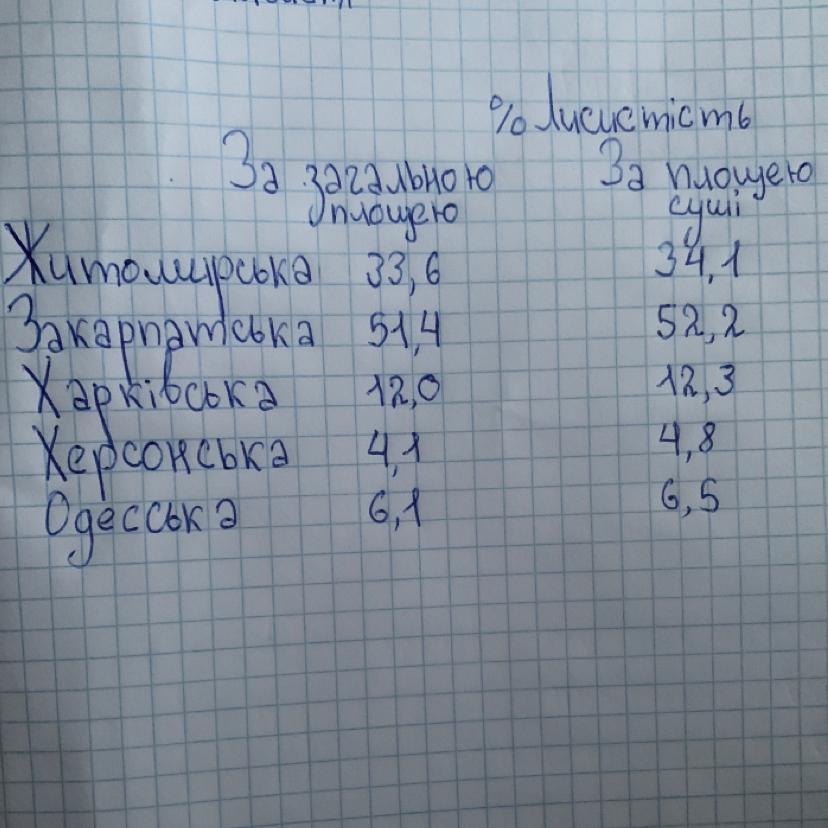 % Лисистість
За загальною За площею
площею суші
Житомирська 33,6 34,1
Закарпатська 51,4 52,2
Харківська 12,0 12,3
Херсонська 4,1 4,8
Одесська 6,1 6,5